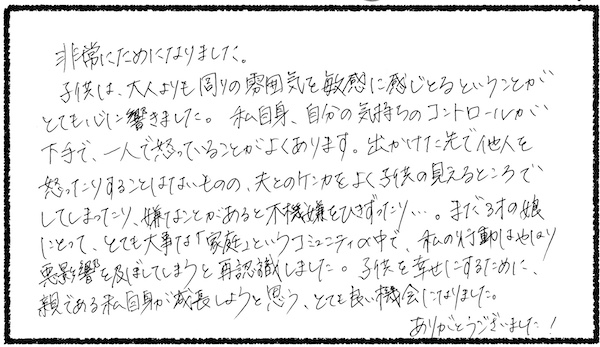 非常にためになりました。
子供は、大人よりも周りの雰囲気を敏感に感じとるということが
とても心に響きました。私自身、自分の気持ちのコントロールが
下手で、一人で怒っていることがよくあります。出かけた先で他人を
怒ったりすることはないものの、夫とのケンカをよく子供の見えるところで
してしまったり、嫌なことがあると不機嫌をひきずったり…。まだ3才の娘
にとって、とても大事な「家庭」というコミュニティの中で、私の行動はやはり
悪影響を及ぼしてしまうと再認識しました。子供を幸せにするために、
親である私自身が成長しようと思う、とても良い機会になりました。
ありがとうございました!